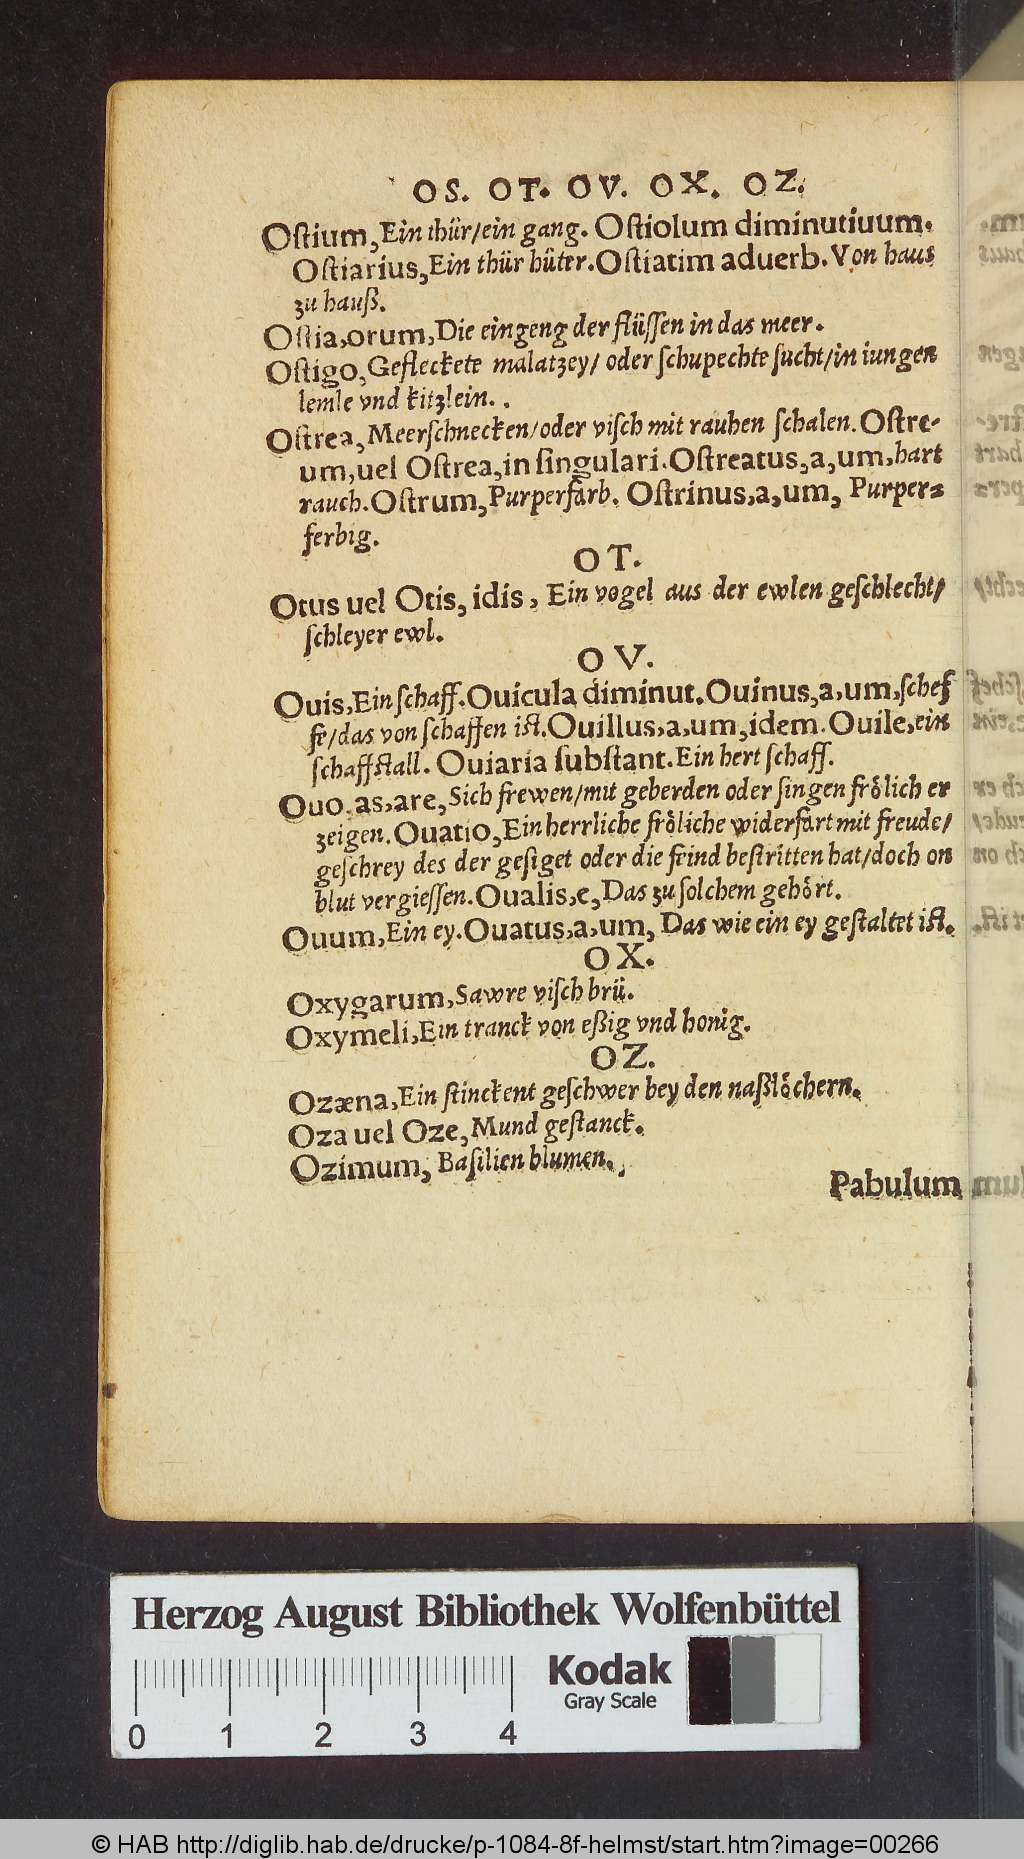 OS. OT. OV. OX. OZ.
Ostium, Ein thür/ein gang. Ostiolum diminutiuum.
Ostiarius, Ein thür hüter. Ostiatim aduerb. Von haus
zu hauß.
Ostia, orum, Die eingeng der flüssen in das meer.
Ostigo, Gefleckete malatzey/ oder schupechte sucht/in iungen
lemle vnd kitzlein. .
Ostrea, Meerschnecken/oder visch mit rauhen schalen. Ostre-
um, uel Ostrea, in singulari. Ostreatus, a, um, hart
rauch. Ostrum, Purperfarb. Ostrinus, a, um, Purper=
ferbig.
OT.
Otus uel Otis, idis, Ein vogel aus der ewlen geschlecht/
schleyer ewl.
OV.
Ouis, Ein schaff. Ouicula diminut. Ouinus, a, um, schef
fe/das von schaffen ist. Ouillus, a, um, idem. Ouile, ein
schaffstall. Ouiaria substant. Ein hert schaff.
Ouo. as, are, Sich frewen/mit geberden oder singen frölich er
zeigen. Ouatio, Ein herrliche fröliche widerfart mit freude/
geschrey des der gesiget oder die feind bestritten hat/doch on
blut vergiessen. Oualis, e, Das zu solchem gehört.
Ouum, Ein ey. Ouatus, a, um, Das wie ein ey gestaltet ist.
OX.
Oxygarum, Sawre visch brü.
Oxymeli, Ein tranck von eßig vnd honig.
OZ.
Ozæna, Ein stinckent geschwer bey den naßlöchern.
Oza uel Oze, Mund gestanck.
Ozimum, Basilien blumen.
Pabulum
Herzog August Bibliothek Wolfenbüttel
Kodak
Gray Scale
0 1 2 3 4
© HAB http://diglib.hab.de/drucke/p-1084-8f-helmst/start.htm?image=00266